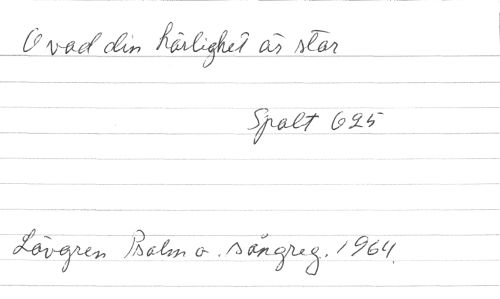 O vad din härlighet är stor
Spalt 625
Lövgren Psalm o. sångreg. 1964.